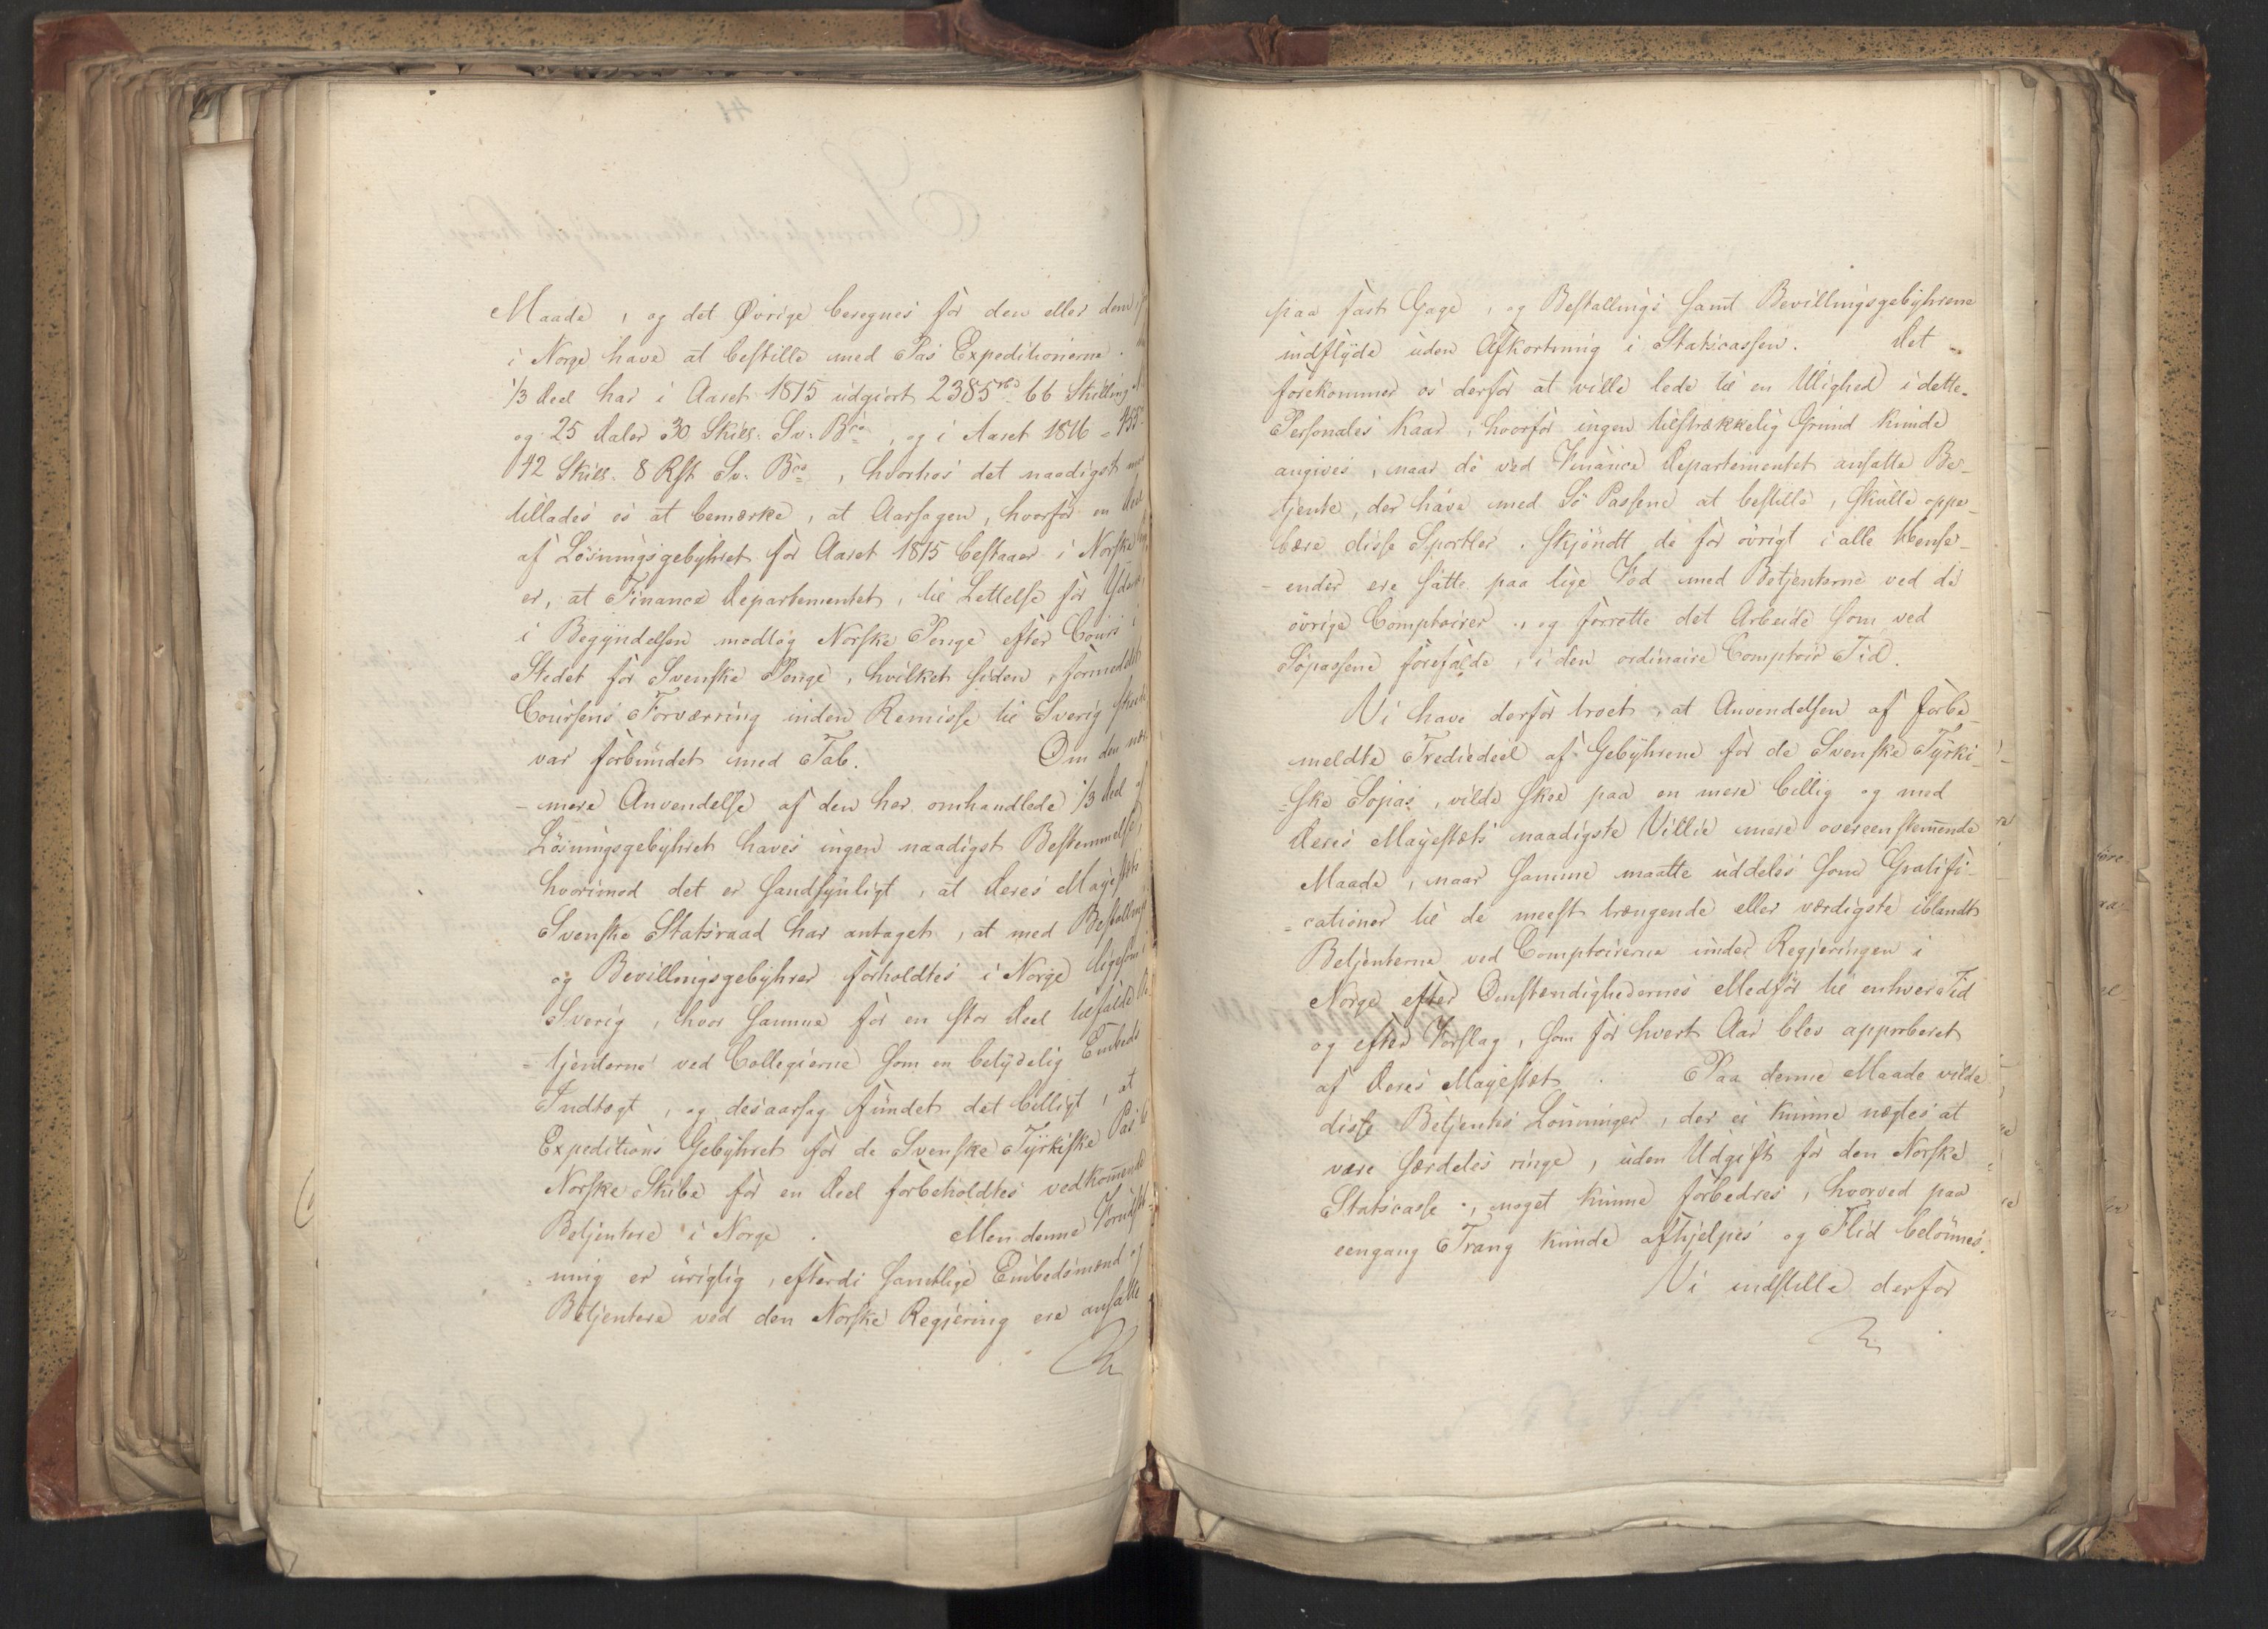 Maade, og det Øvrige beregnes for den eller dem
i Norge have at bestille med Pas Expeditionerne.
1/3 Deel har i Aaret 1815 udgiort 2385 rbd 66 Skilling
og 25 Daler 30 Skill: Sv: Bco, og i Aaret 1816 = 455
42 Skill. 8 Rst Sv: Bco, hvorhos det naadigst
tillades os at bemærke, at Aarsagen, hvorfor en Deel
af Løsningsgebyhret for Aaret 1815 bestaaer i Norske
er, at Finance Departementet, til Lettelse for
i Begyndelsen modtog Norske Penge efter Cours i
Stedet for Svenske Penge, hvilket siden, formedelst
Coursens Forværring inden Remisse til Sverig
var forbundet med Tab. Om den nær-
-mere Anvendelse af den her omhandlede 1/3 Deel af
Løsningsgebyhret haves ingen naadigst Bestemmelse,
hvorimod det er sandsynligt, at Deres Majestæts
Svenske Statsraad har antaget, at med Bestallings
og Bevillingsgebyhrer forholdtes i Norge ligesom i
Sverig, hvor samme for en stor Deel tilfalde
-tjenterne ved Collegierne som en betydelig Embeds
Indtægt, og desaarsag fundet det billigt, at
Expeditions Gebyhret for de Svenske Tyrkiske Pas
Norske Skibe for en Deel forbeholdtes vedkommende
Betjentere i Norge. Men denne Forudsæt-
-ning er urigtig, efterdi samtlige Embedsmænd og
Betjentere ved den Norske Regjering ere ansatte
paa fast Gage, og Bestallings samt Bevillingsgebyhrene
indflyde uden Afkortning i Statscassen. Det
forekommer os derfor at ville lede til en Ulighed i dette
Personales Kaar, hvorfor ingen tilstrækkelig Grund kunde
angives, naar de ved Finance Departementet ansatte Be-
tjente, der have med Sø Passene at bestille, skulle oppe-
bære disse Sportler, skjøndt de for øvrigt i alle Hense-
-ender ere satte paa lige Fod med Betjenterne ved de
øvrige Comptoirer, og forrette det Arbeide som ved
Søpassene forefalde, i den ordinaire Comptoir Tid.
Vi have derfor troet, at Anvendelsen af forbe-
meldte Trediedeel af Gebyhrene for de Svenske Tyrki-
-ske Søpas, vilde skee paa en mere billig og med
Deres Majestæts naadigste Villie mere overeenstemmende
Maade, naar samme maatte uddeles som Gratifi-
-cationer til de meest trængende eller værdigste iblandt
Betjenterne ved Comptoirerne under Regjeringen i
Norge efter Omstændighedernes Medfør til enhver Tid
og efter Forslag, som for hvert Aar blev approberet
af Deres Majestæt. Paa denne Maade vilde
disse Betjentes Lønninger, der ei kunne nægtes at
være særdeles ringe, uden Udgift for den Norske
Statscasse, noget kunne forbedres, hvorved paa
eengang Trang kunde afhjelpes og Flid belønnes.
Vi indstille derfor